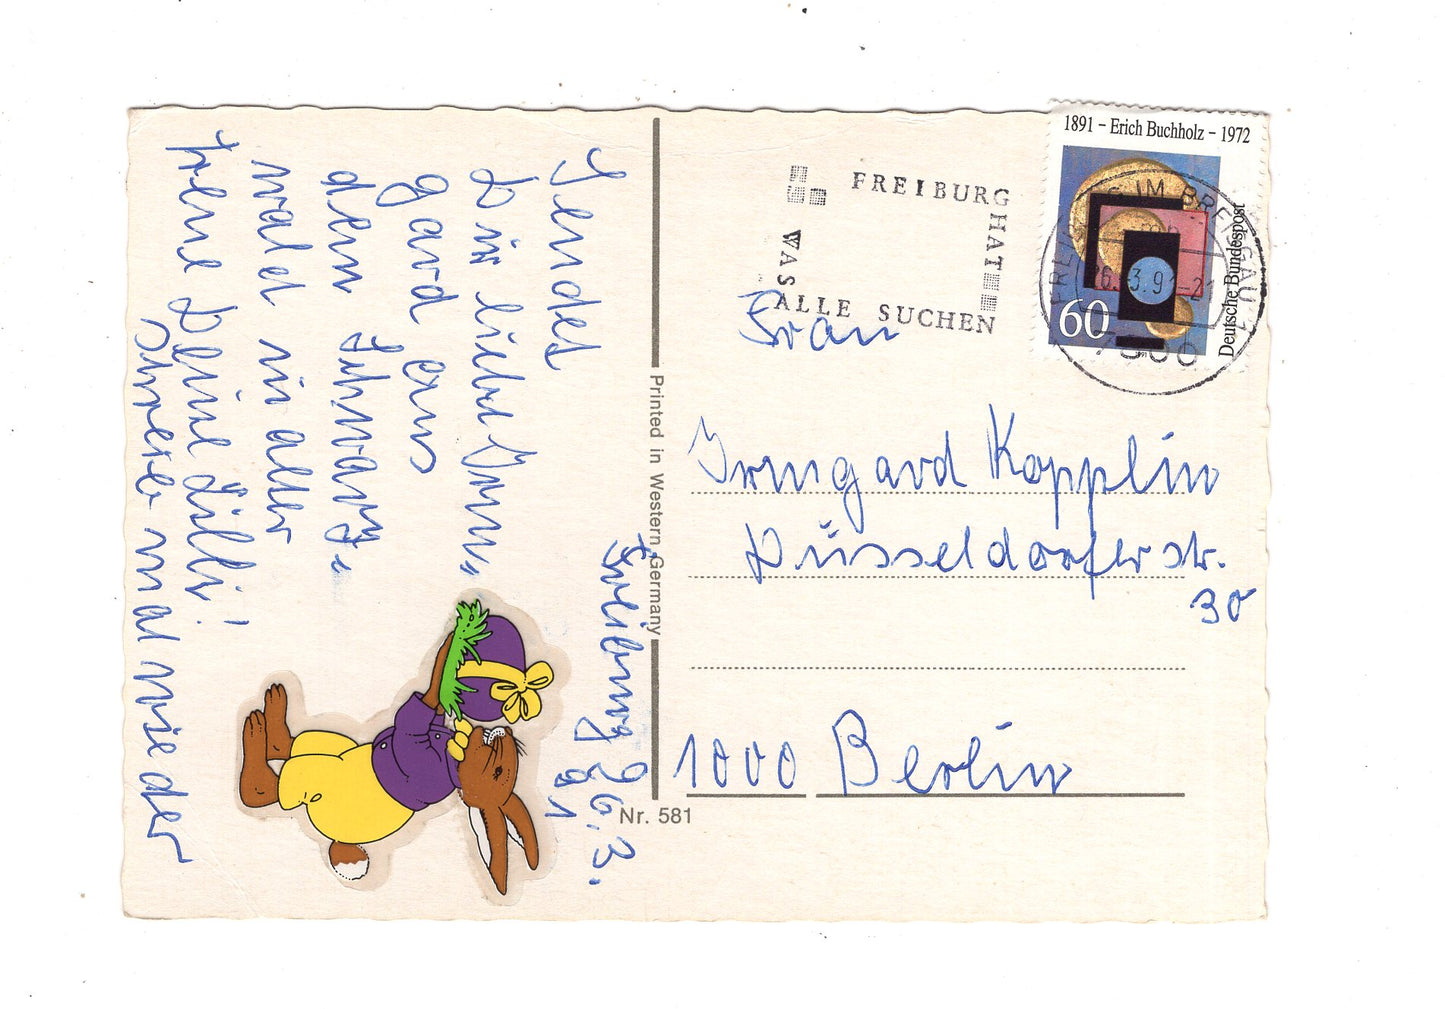 Freiburg 26.3.
91
Sendet
Dir liebe Irm„
gard aus
dem Schwarz„
wald in alter
Treue Deine Lilli!
Schreib mal wieder
Printed in Western Germany
Nr. 581
FREIBURG
HAT
WAS
ALLE SUCHEN
1891 – Erich Buchholz – 1972
Deutsche Bundespost
60
FREIBURG IM BREISGAU 1
26.-3.91-21
7800
Frau
Irmgard Kopplin
Düsseldorferstr.
30
1000 Berlin